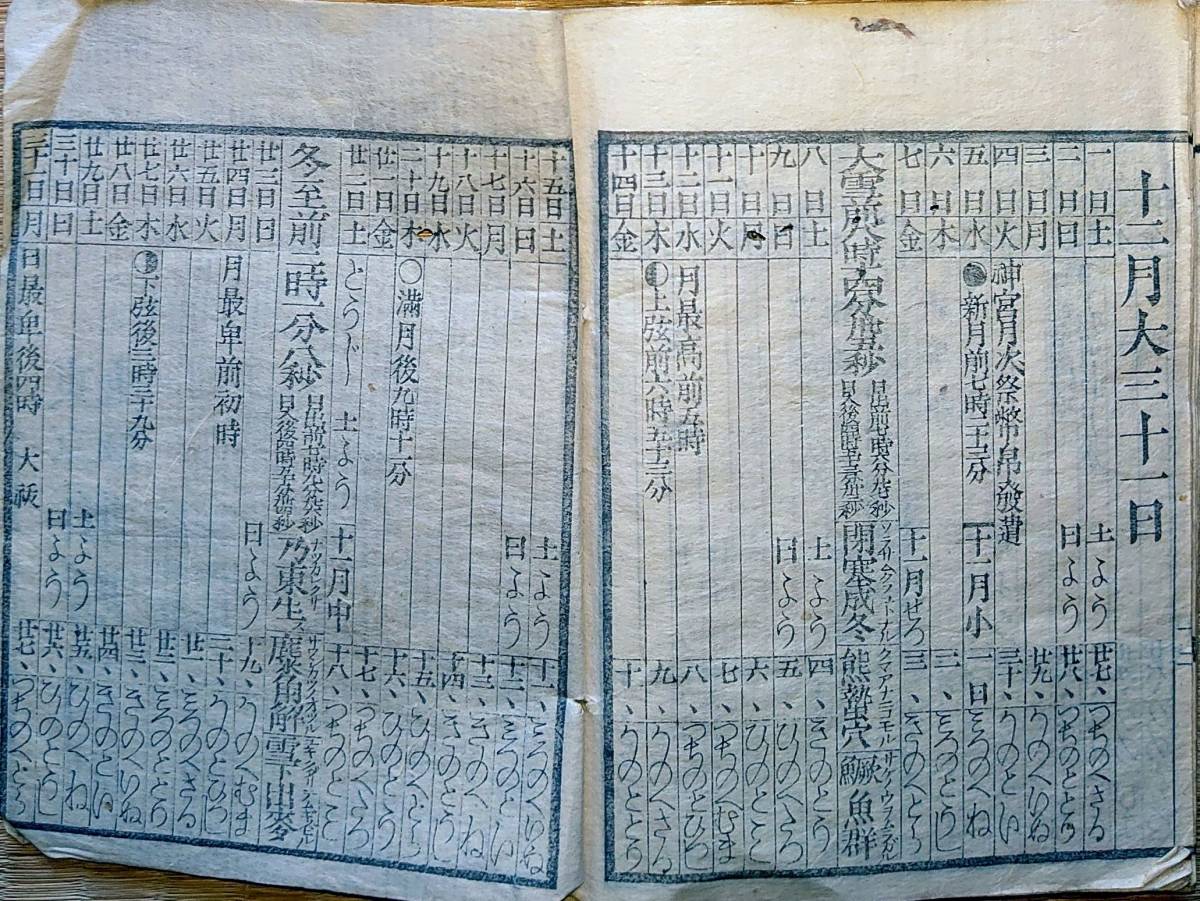 十二月大三十一日
一日土 土よう 廿七、つちのへさる
二日日 日よう 廿八、つちのととり
三日月 廿九、かのへいぬ
四日火 神宮月次祭幣帛發遣 三十、かのとい
五日水 新月前七時二十三分 十一月小 一日 みつのへね
六日木 二、みつのとうし
七日金 十一月せつ 三、きのへとら
大雪前 日出前 日入後 閉塞成冬 ソラサムクフユトナル 熊蟄穴 クマアナニコモル 鱖魚群 サケノウヲムラガル
八日土 土よう 四、きのとう
九日日 日よう 五、ひのへたつ
十日月 六、ひのとみ
十一日火 七、つちのへむま
十二日水 月最高前五時 八、つちのとひつし
十三日木 上弦前六時五十三分 九、かのへさる
十四日金 十、かのととり
十五日土 土よう 十一、みつのへいぬ
十六日日 日よう 十二、みつのとい
十七日月 十三、きのへね
十八日火 十四、きのとうし
十九日水 十五、ひのへとら
二十日木 ○滿月後九時十一分 十六、ひのとう
廿一日金 十七、つちのへたつ
廿二日土 とうじ 土よう 十一月中 十八、つちのとみ
冬至前二時一分八秒 日出前 日入後 乃東生 ナツカレクサ 麋角解 雪下出麥
廿三日日 日よう 十九、かのへむま
廿四日月 月最卑前初時 二十、かのとひつし
廿五日火 廿一、みつのへさる
廿六日水 廿二、みつのととり
廿七日木 下弦後三時三十九分 廿三、きのへいぬ
廿八日金 廿四、きのとい
廿九日土 土よう 廿五、ひのへね
三十日日 日よう 廿六、ひのとうし
三十一日月 日最卑後四時 大祓 廿七、つちのへとら